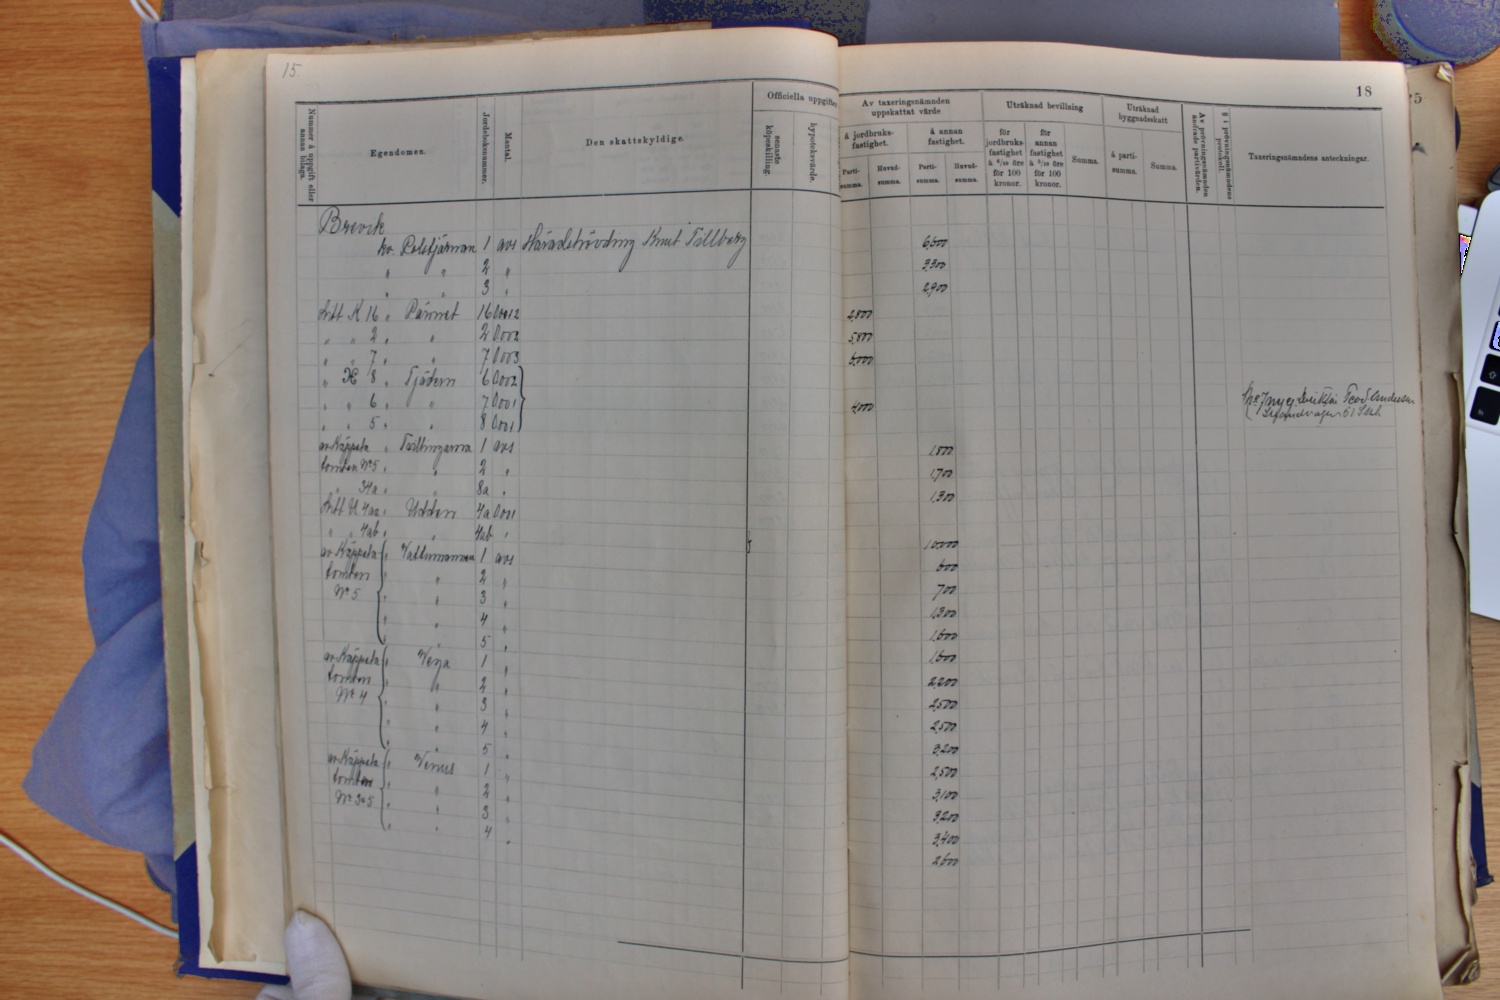 15.
18
Nummer å uppgift eller annan bilaga.
Egendomen.
Jordeboksnummer.
Mantal.
Den skattskyldige.
Officiella uppgifter
senaste köpeskilling.
hypoteksvärde.
Av taxeringsnämnden uppskattat värde
å jordbruks-fastighet.
å annan fastighet.
Parti-summa.
Huvud-summa.
Parti-summa.
Huvud-summa.
Uträknad bevillning
för jordbruks-fastighet å 6/10 öre för 100 kronor.
för annan fastighet å 5/10 öre för 100 kronor.
Summa.
Uträknad byggnadsskatt
å parti-summa.
Summa.
Av prövningsnämnden ändrade partivärden.
§ i prövningsnämndens protokoll.
Taxeringsnämndens anteckningar.
Brevik
kv. Polstjärnan 1 avs Häradshövding Knut Tillberg 6,500
" " 2 " 3,300
" " 3 " 2,900
Litt K 16 " 16 0.0012 2,800
" " 2 " " 2 0.002 5,800
" " 7 " " 7 0.003
" 8 " Tjädern 6 0.002
" " 6 " " 7 0.001 4,000
" " 5 " " 8 0.001
av Käppala " 1 avs 1,800
tomten No 5 " " 2 " 1,700
" 34a " 8a " 1,300
Litt U 4aa " Udden 4a 0.001
" " 4ab " 4ab " 10,000
av Käppala " Vattumannen 1 avs 600
tomten " " 2 " 700
No 5 " " 3 " 1,300
" " 4 " 1,600
" " 5 " 1,600
av Käppala " Vega 1 " 2,200
tomten " " 2 " 2,500
No 4 " " 3 " 2,500
" " 4 " 3,200
" " 5 " 2,500
av Käppala " Venus 1 " 3,100
tomten " " 2 " 3,200
" " 3 " 3,400
" " 4 " 2,600